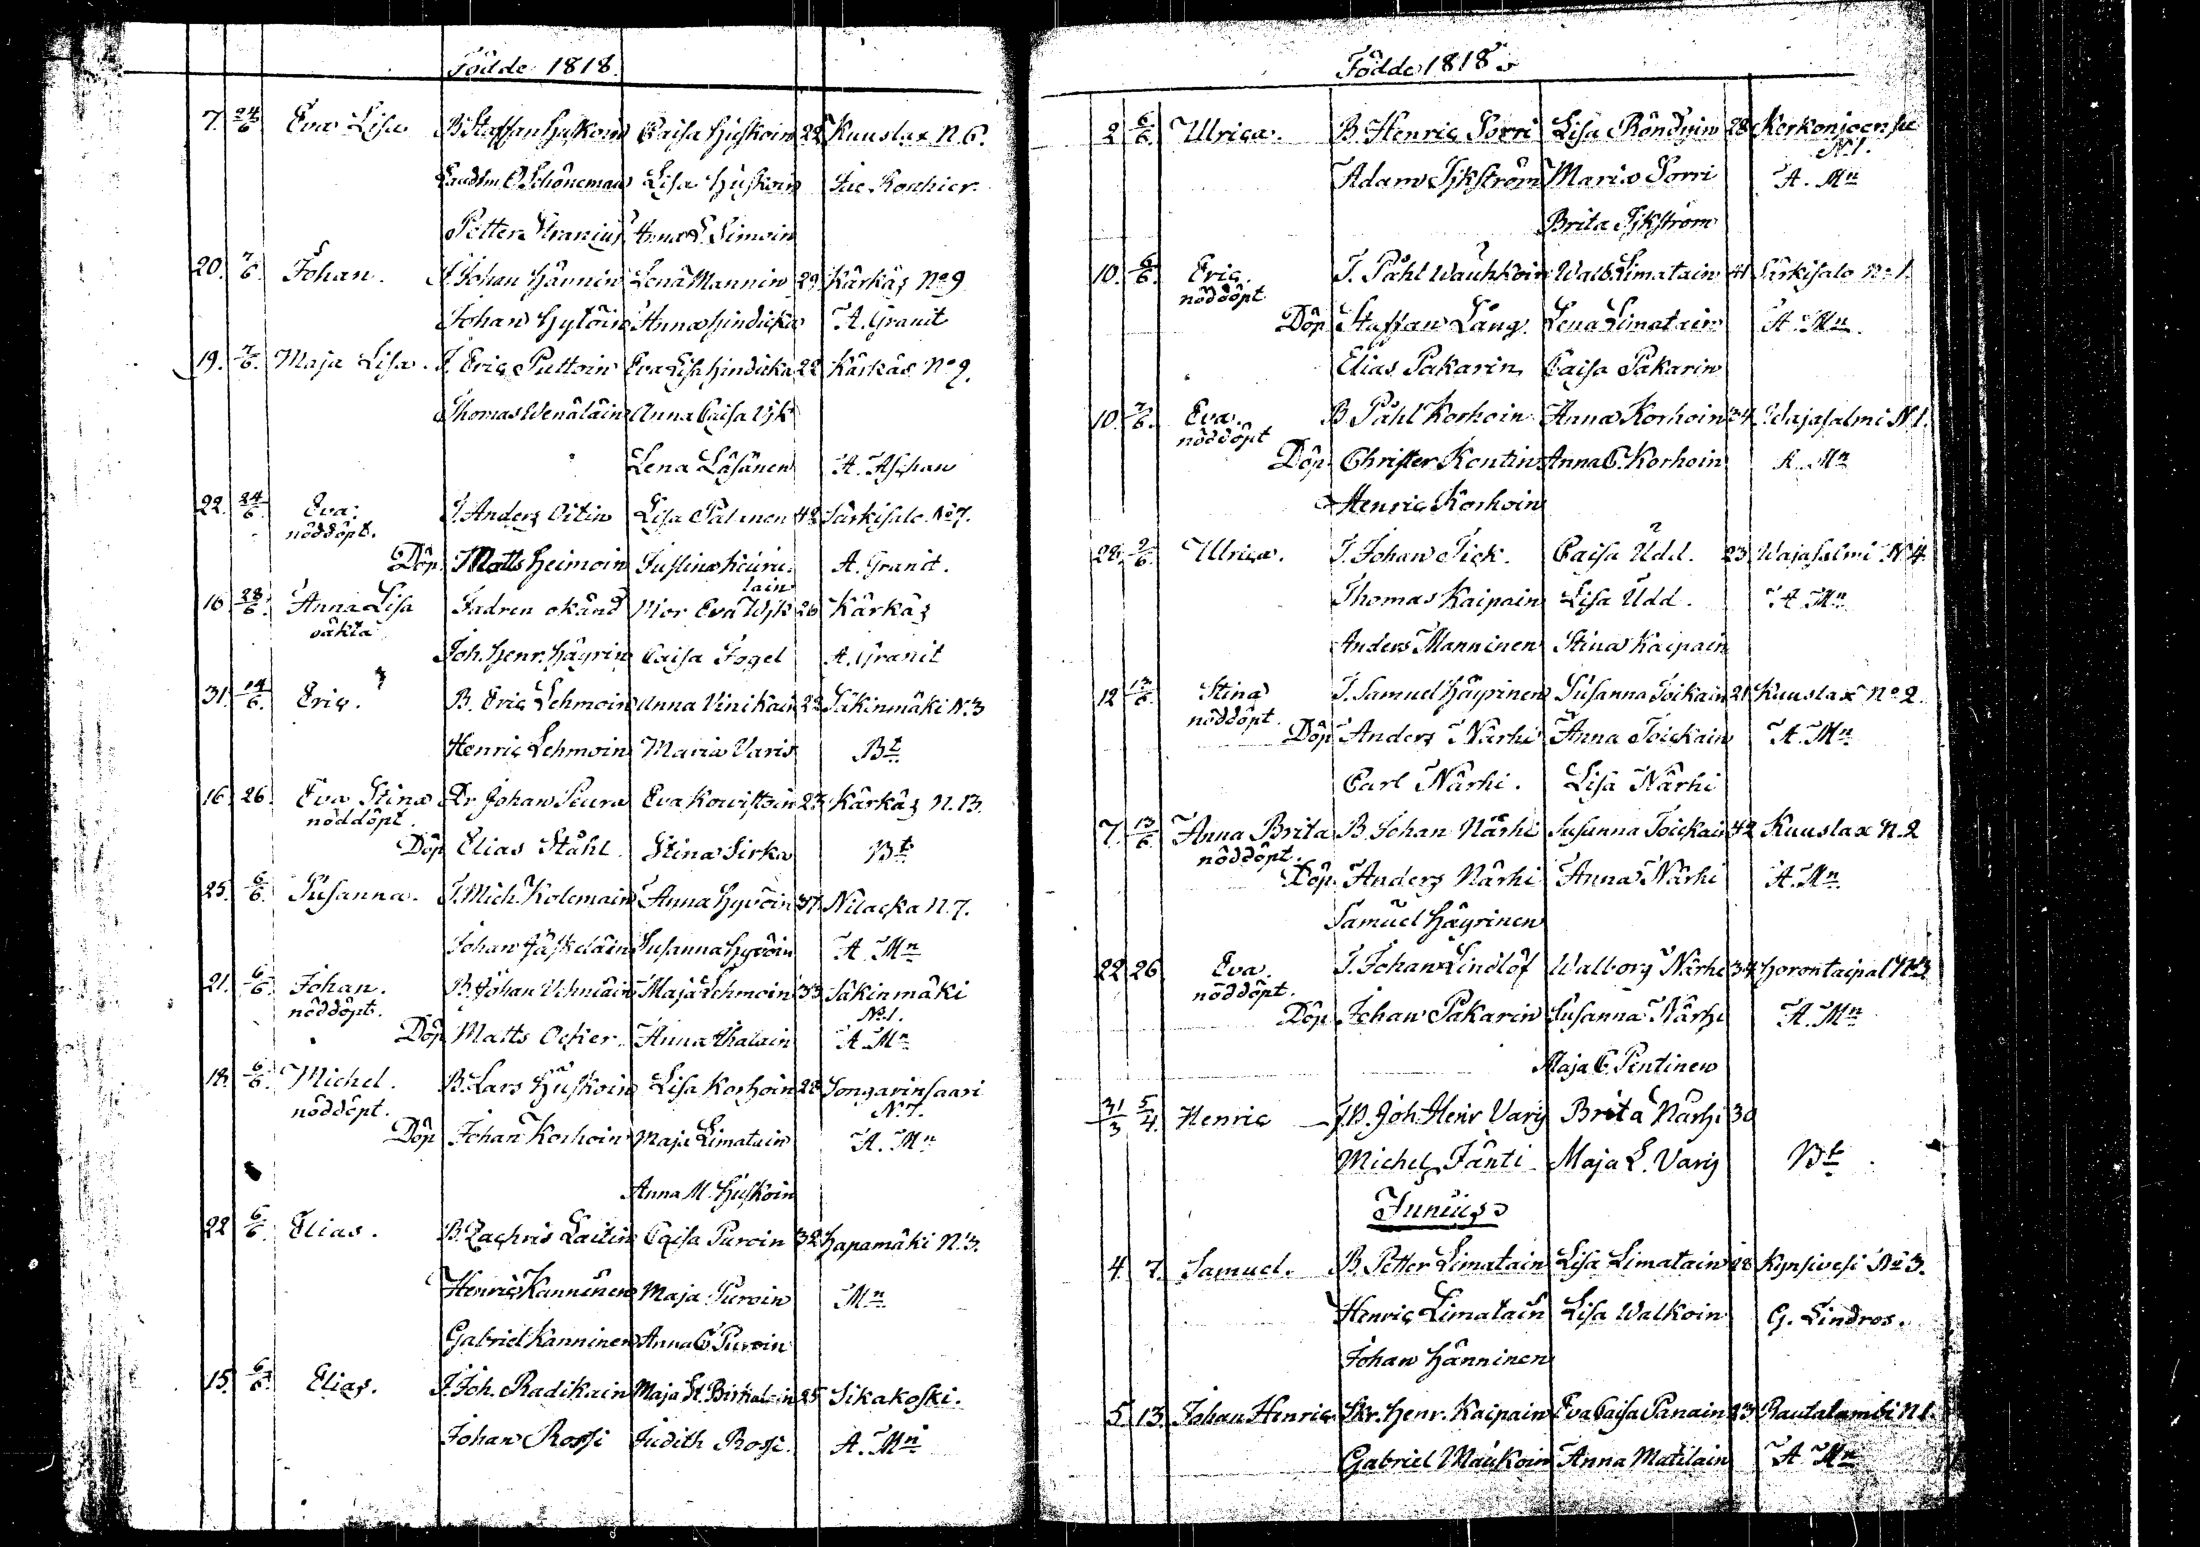 Födde 1818.
7. 24/6 Eva Lisa B. Staffan Huskoin Caisa Huskoin 22 Kuuslax N. 6.
Schöneman Lisa Huskoin
Petter Anna L. Simoin
20. 7/6 Johan. J. Johan Hännin Lena Mannin 29 Kärkäs No 9
Johan Hytöin Anna Hindicka A. Granit
19. 7/6 Maja Lisa. J. Eric Puttoin Eva Lisa Hindicka 22 Kärkäs No 9.
Thomas Wenäläin Anna Caisa Wjk
Lena Läsänen A. Aschan
22. 24/6 Eva. J. Anders Oitin Lisa Palmen 42 Särkisalo No 7.
nöddöpt.
Döp. Matts Heimoin Justina Keinu- A. Granit.
lain
16 28/6 Anna Lisa Fadren okänd Mor Eva Wjk 26 Kärkäs
oäkta
Joh. Henr. Häyrin Caisa Fogel A. Granit
31. 14/6 Eric. B. Eric Lehmoin Anna Vinikain 22 Säkinmäki N. 3
Henric Lehmoin Maria Varis Bt
16 26. Eva Stina Dr. Johan Seura Eva Kowistoin 27 Kärkäs N. 13.
nöddöpt.
Döp Elias Ståhl. Stina Sirka Bt
25. 6/6 Susanna. J. Mich. Kolemain Anna Hyvöin 37 Nilacka N. 7.
Johan Jäskeläin Susanna Hyvöin A. Mn
21. 6/6 Johan. B. Johan Maja Lehmoin 33 Säkinmäki
nöddöpt. No 1.
Döp Matts Ocker. Anna A. Mn
18. 6/6 Michel. B. Lars Huskoin Lisa Korhoin 28 Songarinsaari
nöddöpt. N. 7.
Döp Johan Korhoin Maja Limatain A. Mn
Anna M. Huskoin
22 6/6 Elias. B. Zachris Laitin Caisa Puroin 32 Hapamäki N. 3.
Henric Kanninen Maja Puroin Mn
Gabriel Kanninen Anna C. Puroin
15. 6/6 Elias. J. Joh. Radikain Maja St. 25 Sikakoski.
Johan Rossi Judith Rossi. A. Mn
Födde 1818.
2 6/6 Ulrica. B. Henric Sorri Lisa Röndyin 28 Kerkonjoensu
N. 1.
Adam Sjkström Maria Sorri A. Mn
Brita Sjkström
10. 6/6 Eric. J. Påhl Wauhkoin Walb. Limatain 41 Särkisalo No 1.
nöddöpt
Döp Staffan Lång. Lena Limatain A. Mn.
Elias Pakarin Caisa Pakarin
10. 7/6 Eva. B. Påhl Korhoin Anna Korhoin 34 Wajasalmi N. 1.
nöddöpt
Döp Christer Kontin Anna C. Korhoin A. Mn
Henric Korhoin
28. 2/6 Ulrica. J. Johan Tick. Caisa Udd. 23 Wajasalmi N 4.
Thomas Kaipain Lisa Udd. A. Mn
Anders Manninen Stina Kaipain
12 13/6 Stina J. Samuel Häyrinen Susanna Toikain 21 Kuuslax No 2.
nöddöpt.
Döp Anders Närhi Anna Toickain A. Mn
Carl Närhi. Lisa Närhi
7. 13/6 Anna Brita B. Johan Närhi Susanna Toickain 42 Kuuslax N. 2
nöddöpt.
Döp. Anders Närhi Anna Närhi A. Mn.
Samuel Häyrinen
22 26 Eva. J. Johan Lindlöf Walborg Närhi 34 Horontaipal No 3
nöddöpt.
Döp. Johan Pakarin Susanna Närhi A. Mn
Maja C. Pentinen
31/3 5/4. Henric Joh. Henr Varis Brita Närhi 30
Michel Jänti Maja L. Varis Bt
Junius
4. 7. Samuel. B. Petter Limatain Lisa Limatain 28 Kynsivesi No 3.
Henric Limatain Lisa Walkoin G. Lindros.
Johan Hänninen
5 13. Johan Henric Skr. Henr. Kaipain Eva Caisa Panain 23 Rautalambi N 1.
Gabriel Maukoin Anna Matilain A Mn